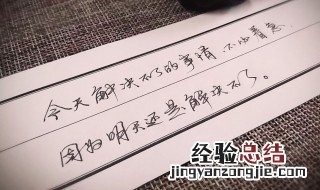 今天解决不了的事情 不必着急.
因为明天还是解决不了。
经验总结
jingyanzongjie.com